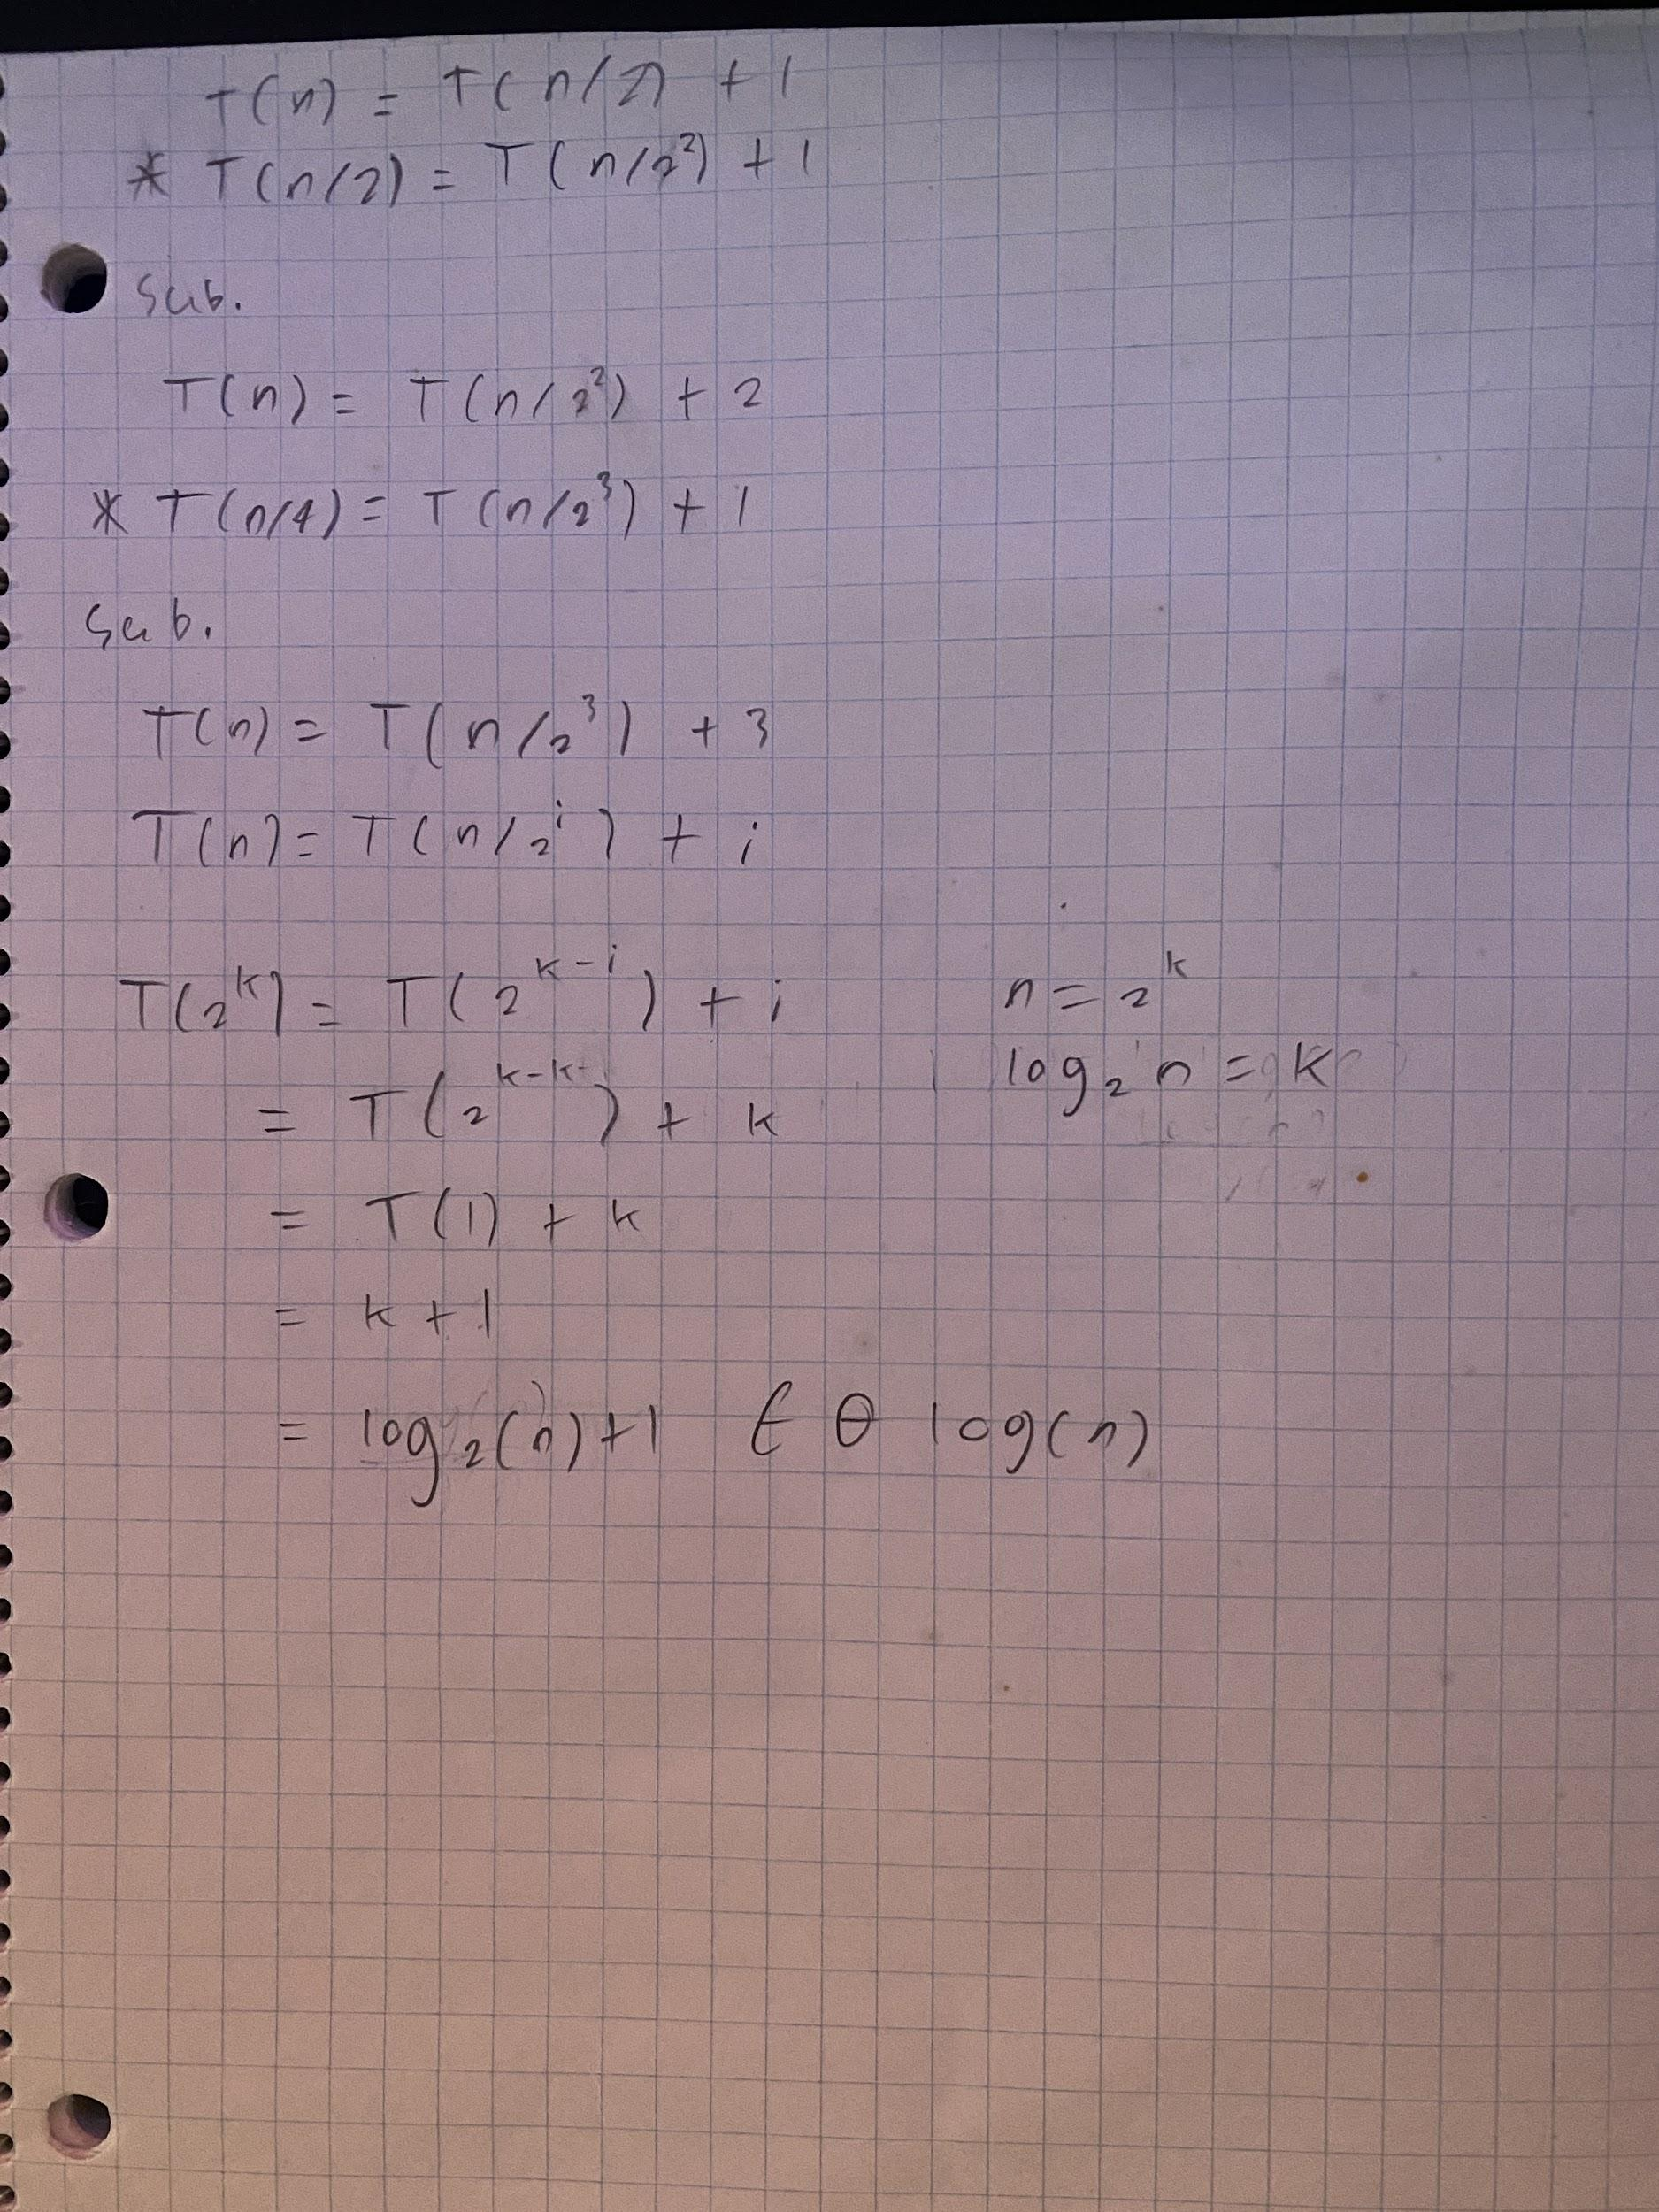 T(n) = T(n/2) + 1
* T(n/2) = T(n/2²) + 1
Sub.
T(n) = T(n/2²) + 2
* T(n/4) = T(n/2³) + 1
Sub.
T(n) = T(n/2³) + 3
T(n) = T(n/2ⁱ) + i
T(2ᵏ) = T(2ᵏ⁻ⁱ) + i
n = 2ᵏ
= T(2ᵏ⁻ᵏ) + k
log₂ n = k
= T(1) + k
= k + 1
= log₂(n) + 1 ∈ θ log(n)